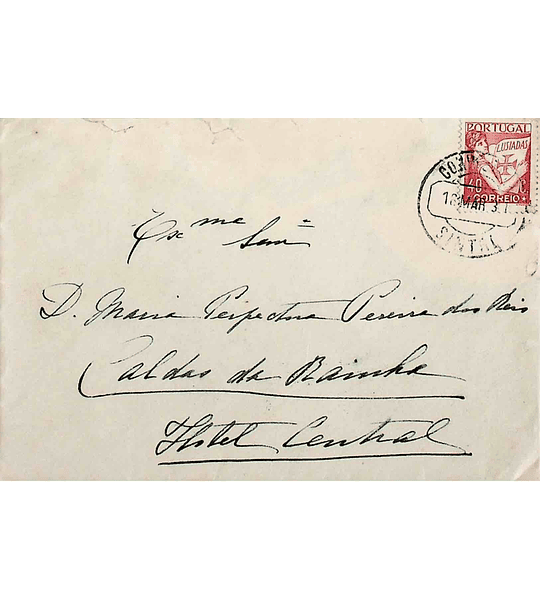 PORTUGAL
LUSIADAS
40 C
CORREIO
MAR 3
SINTRA
Exme Senra
D. Maria Perpectua Pereira dos Reis
Caldas da Rainha
Hotel Central